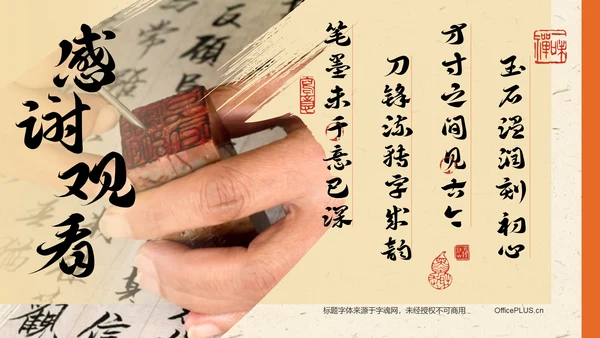 感谢观看
玉石温润刻初心
方寸之间见古今
刀锋流转字成韵
笔墨未干意已深
标题字体来源于字魂网，未经授权不可商用...
OfficePLUS.cn